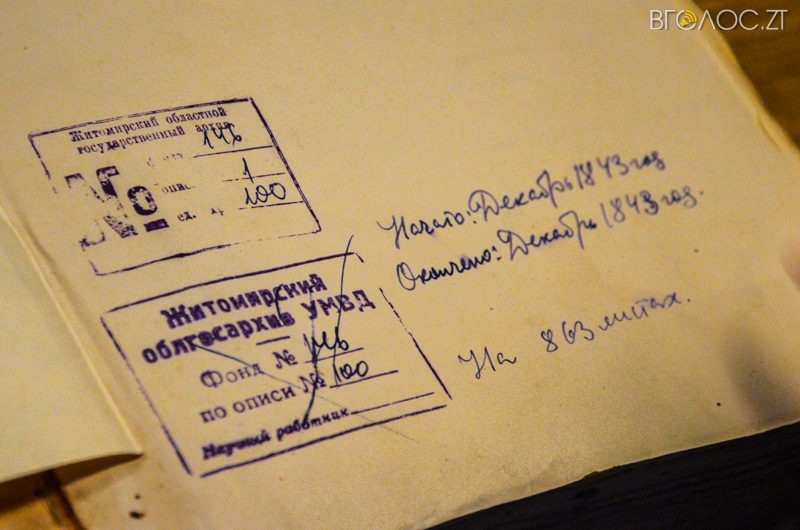 ВГОЛОС.ZT
Житомирский областной
государственный архив
№
фонд 146
опись 1
ед. хр. 100
Житомирский
облгосархив УМВД
Фонд № 146
по описи № 100
Научный работник
Начато: Декабрь 1843 год
Окончено: Декабрь 1843 год.
На 863 листах.